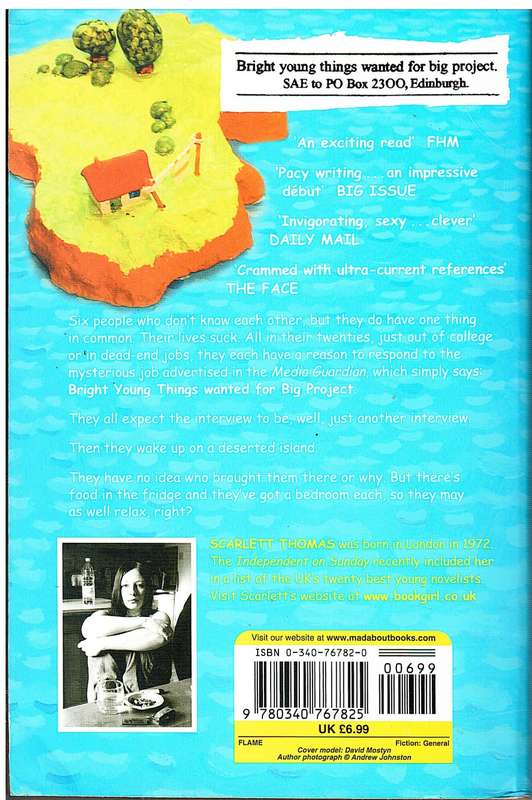 Bright young things wanted for big project.
SAE to PO Box 2300, Edinburgh.
'An exciting read' FHM
'Pacy writing ... an impressive
début' BIG ISSUE
'Invigorating, sexy ... clever'
DAILY MAIL
'Crammed with ultra-current references'
THE FACE
Six people who don't know each other, but they do have one thing
in common. Their lives suck. All in their twenties, just out of college
or in dead-end jobs, they each have a reason to respond to the
mysterious job advertised in the Media Guardian, which simply says:
Bright Young Things wanted for Big Project.
They all expect the interview to be, well, just another interview.
Then they wake up on a deserted island.
They have no idea who brought them there or why. But there's
food in the fridge and they've got a bedroom each, so they may
as well relax, right?
SCARLETT THOMAS was born in London in 1972.
The Independent on Sunday recently included her
in a list of the UK's twenty best young novelists.
Visit Scarlett's website at www.bookgirl.co.uk
Visit our website at www.madaboutbooks.com
ISBN 0-340-76782-0
00699
9 780340 767825
UK £6.99
FLAME
Fiction: General
Cover model: David Mostyn
Author photograph © Andrew Johnston